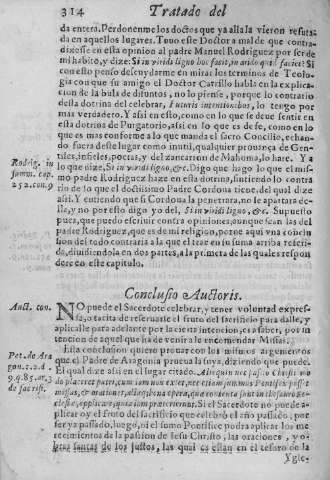 314 Tratado del
da entera. Perdonenme los doctos que ya alla la vieron refuta-
da en aquellos lugares. Tuuo este Doctor a mal de que contra-
dixesse en esta opinion al padre Manuel Rodriguez por ser de
mi habito, y dize: Si in viridi ligno hoc facit, in arido quid faciet? Si
con esto penso descuydarme en mirar los terminos de Teolo-
gia con que su amigo el Doctor Carrillo habla en la explica-
cion de la bula de difuntos, no lo piense, porque lo contrario
desta dotrina del celebrar, Futuris intentionibus, lo tengo por
mas verdadero. Y assi en esto, como en lo que se deue sentir en
esta dotrina de Purgatorio, assi en lo que es de fe, como en lo
que es mas conforme a lo que manda el sacro Concilio, echan-
do fuera deste lugar como inutil, qualquier prouança de Gen-
tiles, infieles, poetas, y del zancarron de Mahoma, lo hare. Y a
lo que dize, Si in viridi ligno, &c. Digo que hago lo que el mis-
mo padre Rodriguez haze en esta dotrina, sintiendo lo contra-
rio de lo que el doctissimo Padre Cordoua tiene, del qual dize
assi. Y entiendo que si Cordoua la penetrara, no le apartara de-
lla, y no por esto digo yo del, Si in viridi ligno, &c. Supuesto
pues, que puedo escriuir contra opiniones, aunque sean las del
padre Rodriguez, que es de mi religion, pone aqui vna conclu-
sion del todo contraria a la que el trae en su suma arriba referi-
da, diuidiendola en dos partes, a la primera de las quales respon-
dere so este capitulo.
Rodrig. in
summ. cap.
252. con. 9
Conclusio Auctoris.
Auct. con.
NO puede el Sacerdote celebrar, y tener voluntad expres-
sa, o tacita de reseruarse el fruto del sacrificio para dalle, y
aplicalle para adelante por la cierta intencion, es a saber, por in-
tencion de aquel que ha de venir a le encomendar Missas.
Esta conclusion quiero prouar con los mismos argumentos
que el Padre de Aragonia prueua la suya, diziendo que puede.
El qual dize assi en el lugar citado.
Pet. de Ara
gon. 2. 2. d.
9. q. 85. ar. 3
de sacrifi.
Si el Sacerdote no puede a-
plicar oy el fruto del sacrificio que celebró el año passado, por
ser ya passado, luego, ni el sumo Pontifice podra aplicar los me
recimientos de la passion de Iesu Christo, las oraciones, y o-
bras santas de los justos, las qual es estan en el tesoro de la
Ygle-